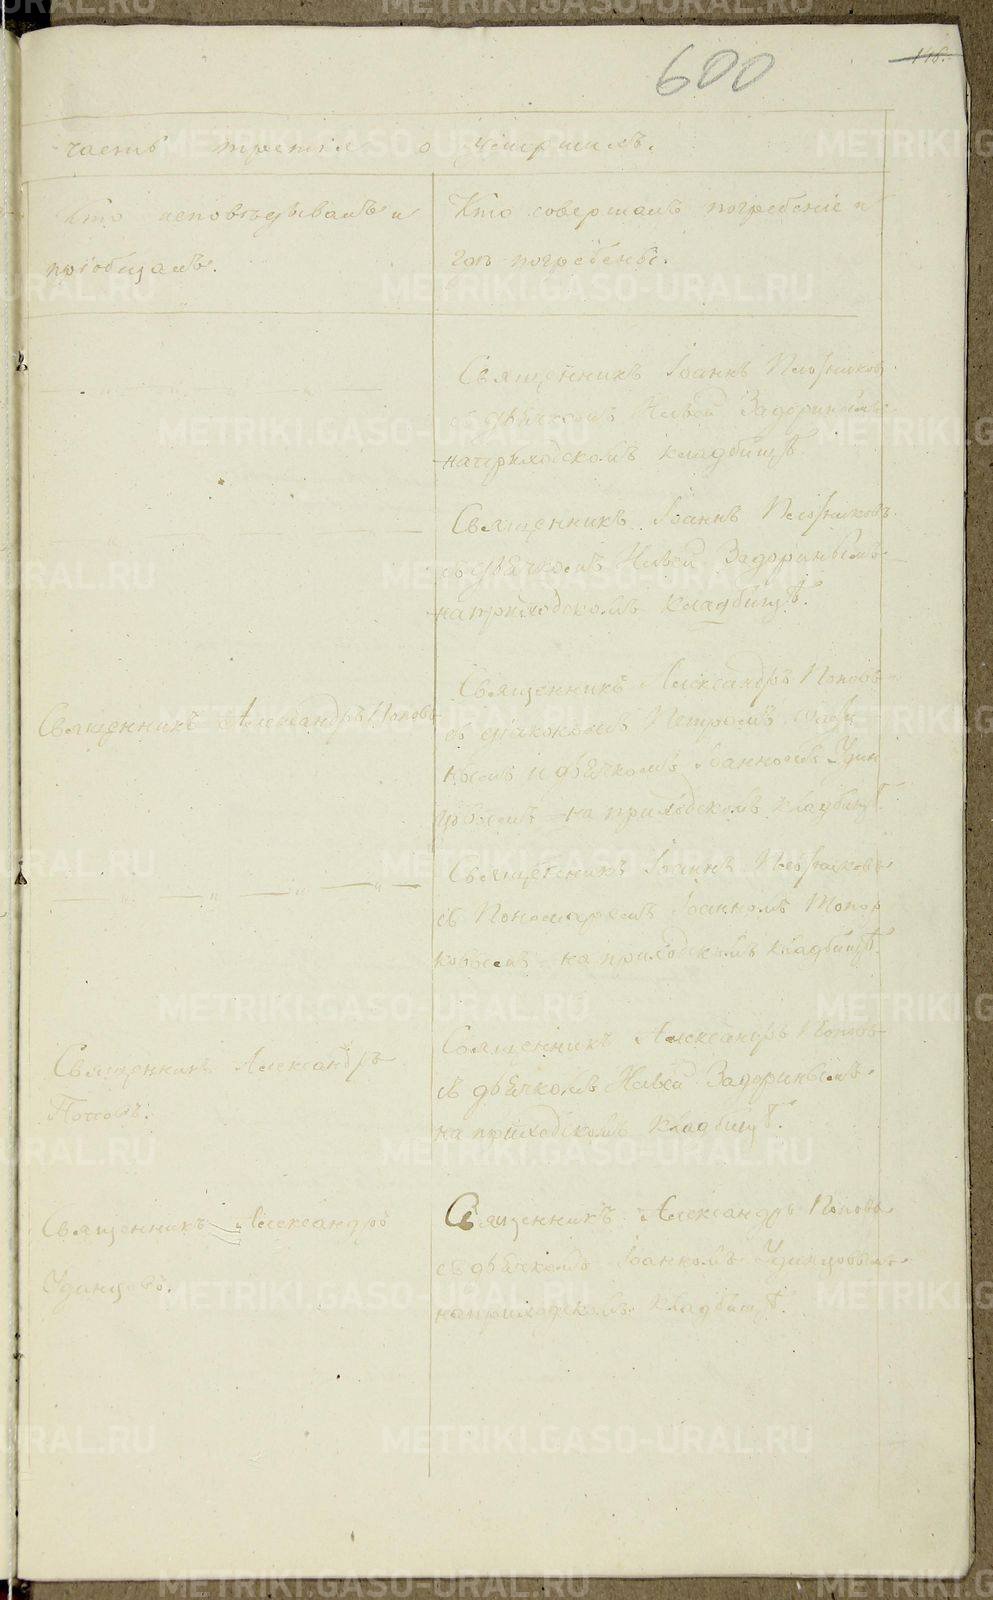 600
146.
часть третія о умершихъ.
Кто исповѣдывалъ и
пріобщалъ.
Кто совершалъ погребеніе и
гдѣ погребены.
Священникъ Іоаннъ
съ дьячкомъ Задоринымъ
на приходскомъ кладбищѣ.
Священникъ Іоаннъ
съ дьячкомъ Задоринымъ
на приходскомъ кладбищѣ.
Священникъ Александръ Поповъ
Священникъ Александръ Поповъ
съ діакономъ Петромъ
и дьячкомъ Іоанномъ Удин
цовымъ на приходскомъ кладбищѣ.
Священникъ Іоаннъ
съ Пономаремъ Іоанномъ Топор
ковымъ на приходскомъ кладбищѣ.
Священникъ Александръ
Поповъ.
Священникъ Александръ Поповъ
съ дьячкомъ Задоринымъ
на приходскомъ кладбищѣ.
Священникъ Александръ
Удинцовъ.
Священникъ Александръ Поповъ
съ дьячкомъ Іоанномъ Удинцовымъ
на приходскомъ кладбищѣ.
METRIKI.GASO-URAL.RU